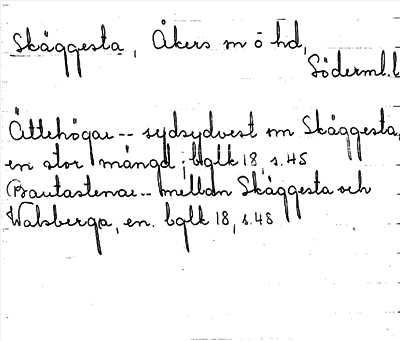 Skäggesta, Åkers m ö hd,
Söderml.l
Ättehögar -- sydsydvest om Skäggesta,
en stor mängd; bglk 18, s. 45
(B)autastenar -- mellan Skäggesta och
Valsberga, en. bglk 18, s. 48